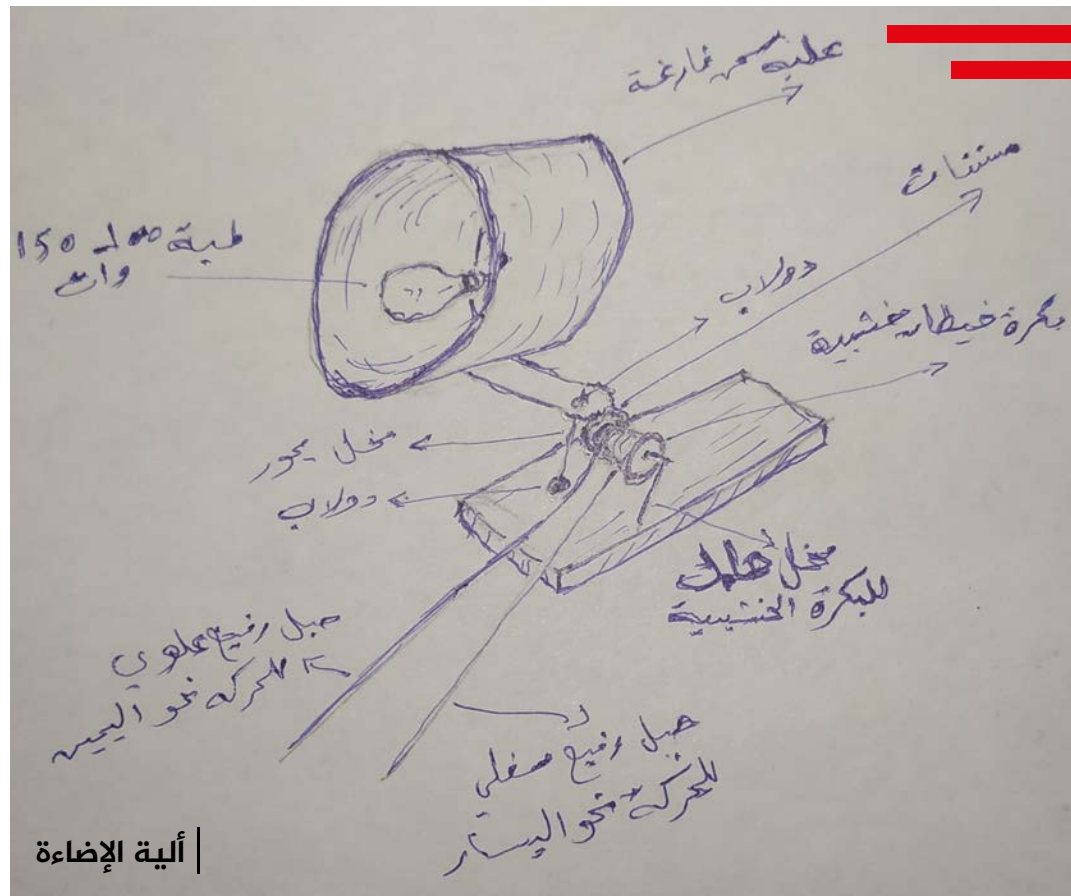 علبة سمن فارغة
مسننات
دولاب
بكرة خيطان خشبية
لمبة 100 - 150
وات
محور
دولاب
للبكرة الخشبية
حبل رفيع علوي
للحركة نحو اليمين
حبل رفيع سفلي
للحركة نحو اليسار
ألية الإضاءة